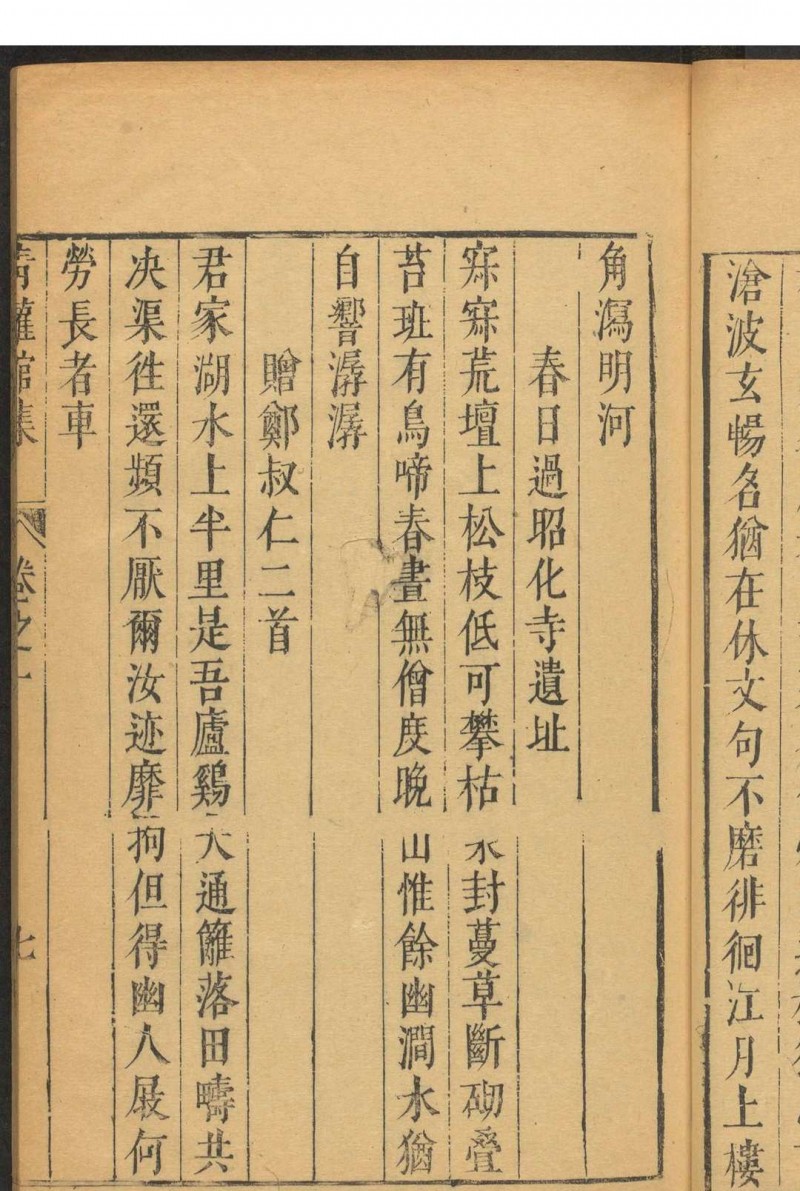 滄波玄暢名猶在休文句不磨徘徊江月上樓
角瀉明河
春日過昭化寺遺址
寂寂荒壇上松枝低可攀枯木封蔓草斷砌疊
苔班有鳥啼春晝無僧度晚山惟餘幽澗水猶
自響潺潺
贈鄭叔仁二首
君家湖水上半里是吾廬鷄犬通籬落田疇共
决渠徃還頻不厭爾汝迹靡拘但得幽人屐何
勞長者車
青蘿館集 卷之一 七